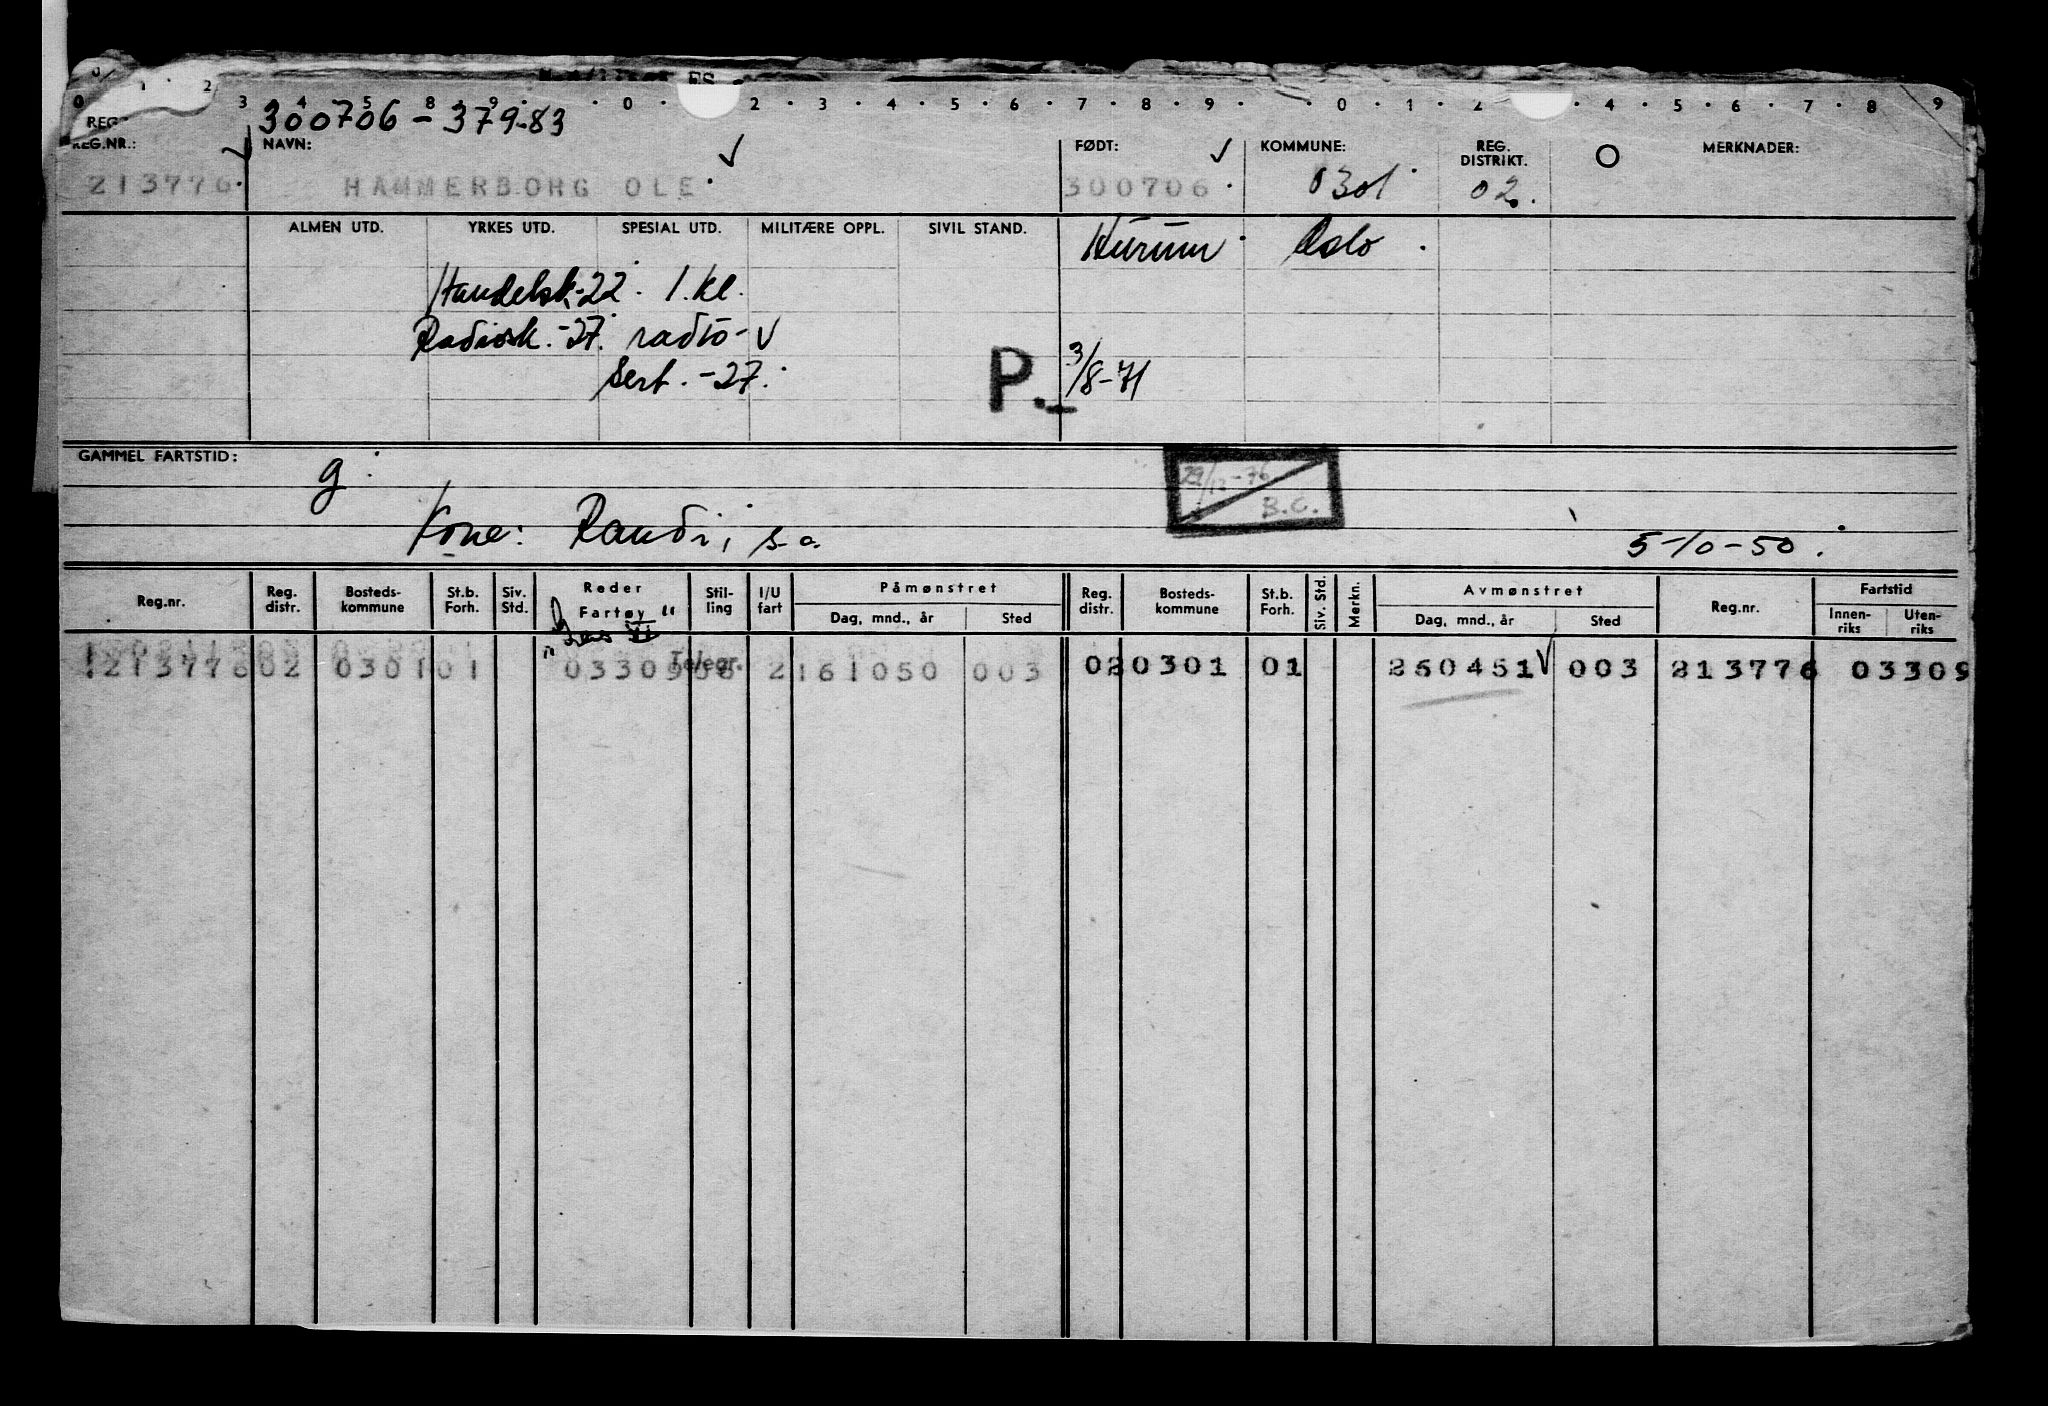 0 1 2 3 4 5 8 9 0 2 3 4 5 6 7 8 9 0 1 2 4 5 6 7 8 9
300706 - 379.83
REG.NR.: NAVN: FØDT: KOMMUNE: REG. DISTRIKT. O MERKNADER:
213776 HAMMERBORG OLE 300706 0301 02.
ALMEN UTD. YRKES UTD. SPESIAL UTD. MILITÆRE OPPL. SIVIL STAND. Hurum Oslo
Handelsk.-22. 1. kl.
Radiosk. -27. radio-
sert. -27.
P. 3/8-71
GAMMEL FARTSTID: g.
29/12-76 B.C.
Kone: Randi, s.a. 5-10-50.
Reg.nr. Reg. distr. Bosteds-kommune St.b. Forh. Siv. Std. Reder Fartøy Stil-ling I/U fart Påmønstret Dag, mnd., år Sted Reg. distr. Bosteds-kommune St.b. Forh. Siv. Std. Merkn. Avmønstret Dag, mnd., år Sted Reg.nr. Fartstid Innen-riks Uten-riks
Telegr.
213776 02 0301 01 03309 06 2 161050 003 02 0301 01 250451 003 213776 03309